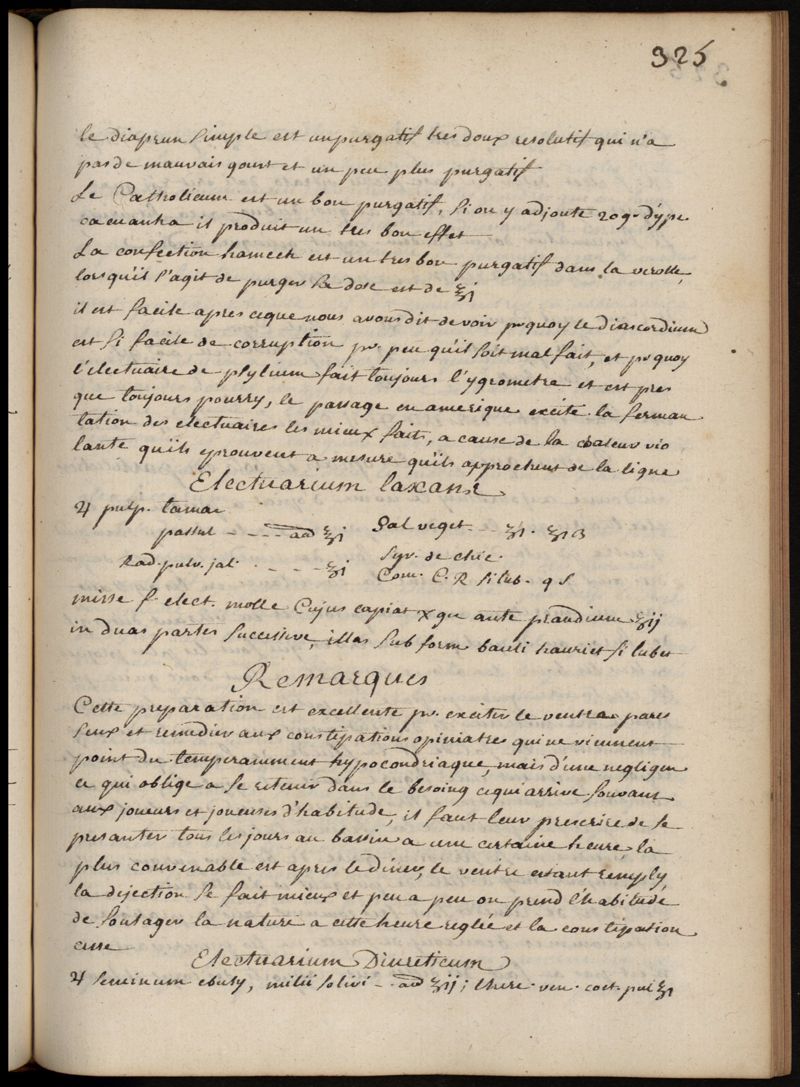 325
le diaprun simple est un purgatif tres doux resolutif qui n'a
pas de mauvais goust et un peu plus purgatif
Le Catholicum est un bon purgatif, si on y adjoute 20 g. d'ype
cacuanha il produit un tres bon effet
La confection hamech est un tres bon purgatif dans la verolle,
lorsqu'il s'agit de purger sa dose est de ℥j
il est facile apres ceque nous avons dit de voir pr quoy le diascordium
est si facile de corruption pr peu qu'il soit mal fait, et pr quoy
l'electuaire de psylium fait toujours l'ygrometre et est pres
que toujours pourry, le passage en amerique excite la ferman
tation des electuaires les mieux faits, a cause de la chaleur vio
lante quils eprouvent a mesure quils approchent de la ligne
Electuarium laxans
♃ pulp. tamar
passul - - - - aa ℥j Sal veget - -
Rad. pulv. jal. - - - - ʒj Syr. de chic.
Com. C. R. si lub. q s
misse f. elect. molle cujus capiat x gr ante prandium ʒij
in duas partes successive, illas sub form bauli hauriet si lubet
Remarques
Cette preparation est excellente pr exciter le ventre pares
seux et remedier aux constipations opiniatres qui ne viennent
point du temperamment hypocondriaque, mais d'une negligen
ce qui oblige a se retenir dans le besoing ce qui arrive souvant
aux joueurs et joueuses d'habitude, il faut leur prescrire de se
presanter tous les jours au bassin a une certaine heure, la
plus convenable est apres le diner, le ventre estant remply,
la dejection se fait mieux et peu a peu on prend l'habitude
de soulager la nature a cette heure reglée et la constipation
cesse
Electuarium Diureticum
♃ Seminum ebuly, milii solivi - - aa ʒij; there. ven. coct. pini